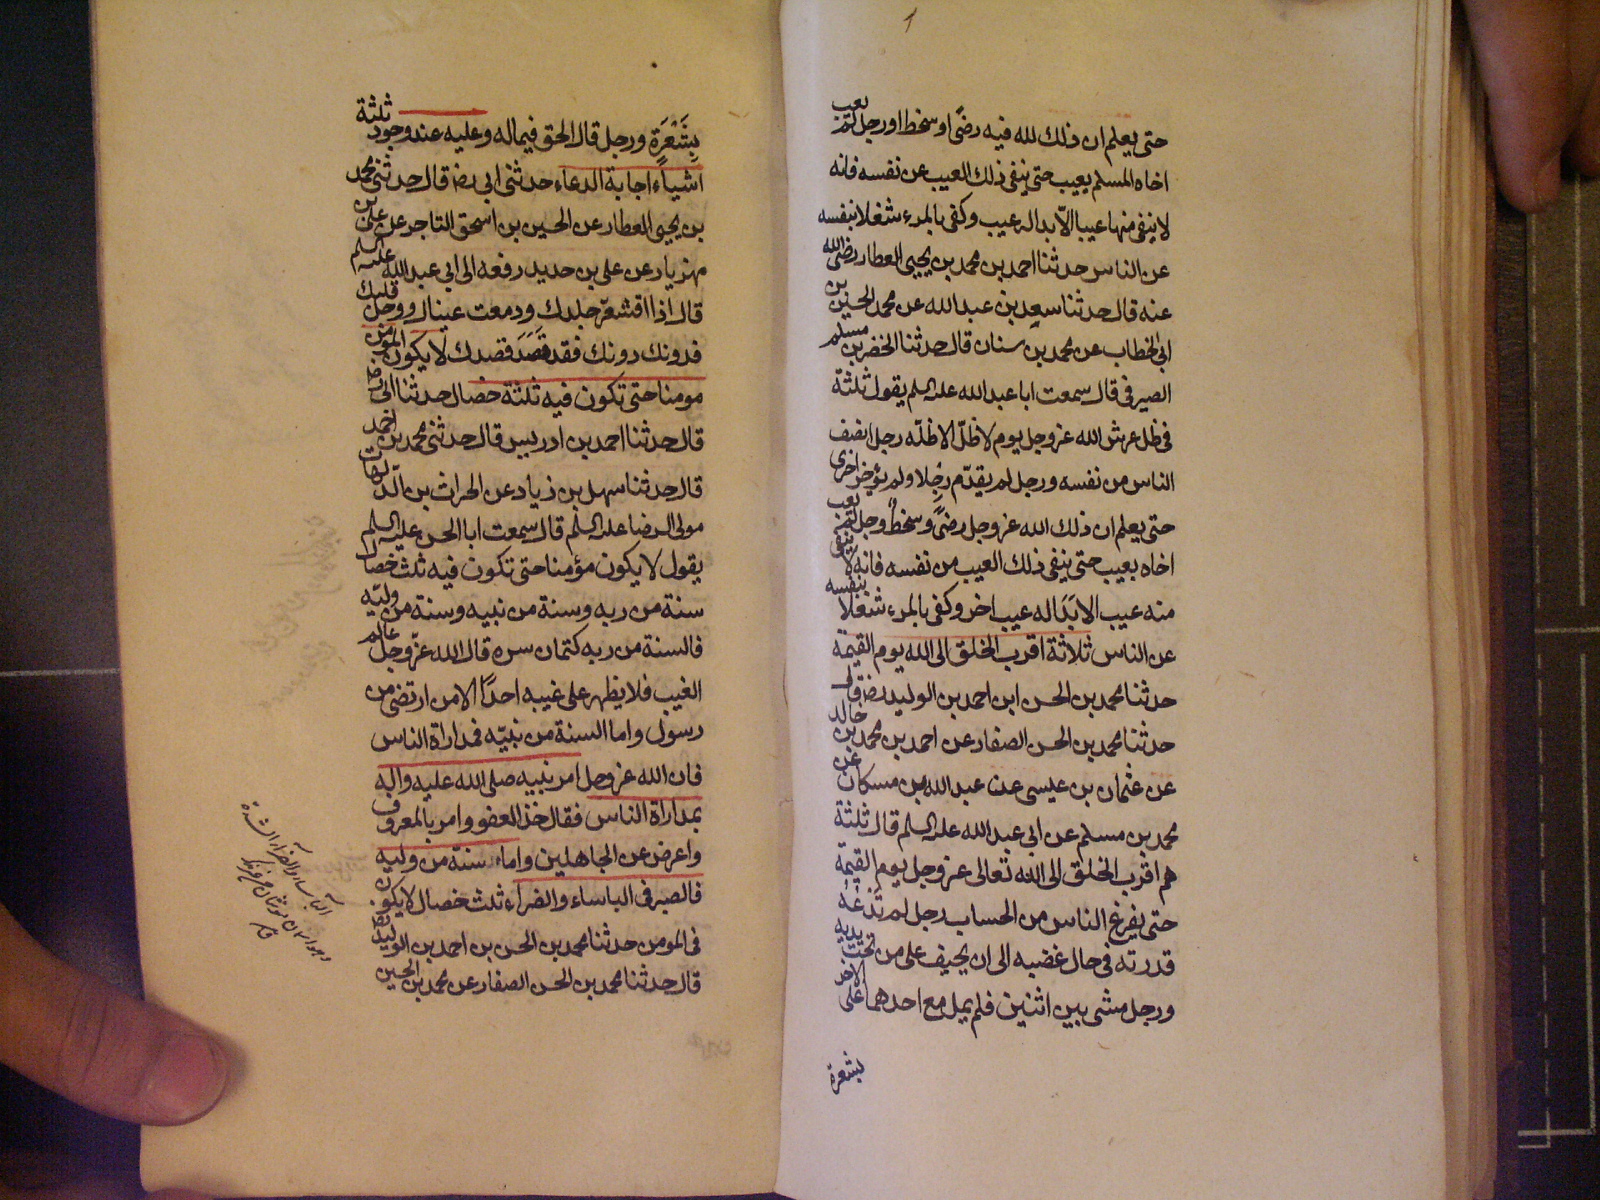 حتى يعلم ان ذلك لله فيه رضًى او سخط او رجل لم يعب
اخاه المسلم بعيب حتى ينفى ذلك العيب عن نفسه فانه
لا ينفى منها عيبا الّا بدا له عيب وكفى بالمرء شغلا بنفسه
عن الناس حدثنا احمد بن محمد بن يحيى العطار رضى الله
عنه قال حدثنا سعد بن عبد الله عن محمد بن الحسين بن
ابى الخطاب عن محمد بن سنان قال حدثنا الخضر بن مسلم
الصيرفى قال سمعت ابا عبد الله عليه السلم يقول ثلثة
فى ظل عرش الله عز وجل يوم لا ظلّ الا ظلّه رجل انصف
الناس من نفسه ورجل لم يقدّم رجلا ولم يؤخر اخرى
حتى يعلم ان ذلك الله عز وجل رضىً وسخطٌ ورجل لم يعب
اخاه بعيب حتى ينفى ذلك العيب من نفسه فانه لا ينفى
منه عيب الا بَدَا له عيب اخر وكفى بالمرء شغلا بنفسه
عن الناس ثلاثة اقرب الخلق الى الله يوم القيمة
حدثنا محمد بن الحسن ابن احمد بن الوليد رضه قال
حدثنا محمد بن الحسن الصفار عن احمد بن محمد بن خالد
عن عثمان بن عيسى عن عبد الله بن مسكان عن
محمد بن مسلم عن ابى عبد الله عليه السلم قال ثلثة
هم اقرب الخلق الى الله تعالى عز وجل يوم القيمة
حتى يفرغ الناس من الحساب رجل لم تدعه
قدرته فى حال غضبه الى ان يحيف على من تحت يديه
ورجل مشى بين اثنين فلم يمل مع احدهما على الاخر
بشعرة
بِشَعْرَةٍ ورجل قال الحق فيما له وعليه ثلثة عند وجود
اشياء اجابة الدعاء حدثنى ابى رضه قال حدثنى محمد
بن يحيى العطار عن الحسين بن اسحق التاجر عن على بن
مهزيار عن على بن حديد رفعه الى ابى عبد الله عليه السلم
قال اذا اقشعرّ جلدك ودمعت عيناك ووجل قلبك
فدونك دونك فقد قصَدَ قصدك لا يكون المؤمن
مومنا حتى تكون فيه ثلثة خصال حدثنا ابى رضه
قال حدثنا احمد بن ادريس قال حدثنى محمد بن احمد
قال حدثنا سهل بن زياد عن الحراث بن الدّلهاث
مولى الرضا عليه السلم قال سمعت ابا الحسن عليه السلم
يقول لا يكون مؤمنا حتى تكون فيه ثلث خصال
سنة من ربه وسنة من نبيه وسنة من وليّه
فالسنة من ربه كتمان سره قال الله عزّ وجل عالم
الغيب فلا يظهر على غيبه احدًا الا من ارتضى من
رسول واما السنة من نبيّه فمداراة الناس
فان الله عز وجل امر نبيه صلى الله عليه واله
بمداراة الناس فقال خذ العفو وامر بالمعروف
واعرض عن الجاهلين واما سنة من وليه
فالصبر فى الباساء والضراء ثلث خصال لا يكون
فى المومن حدثنا محمد بن الحسن بن احمد بن الوليد رضه
قال حدثنا محمد بن الحسن الصفار عن محمد بن الحسين